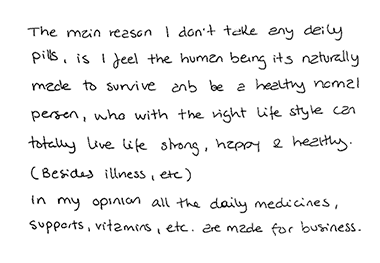 The main reason I don't take any daily
pills, is I feel the human being its naturally
made to survive anb be a healthy nomal
person, who with the right life style can
totally live life strong, happy & healthy.
(Besides illness, etc)
In my opinion all the daily medicines,
supports, vitamins, etc. are made for business.